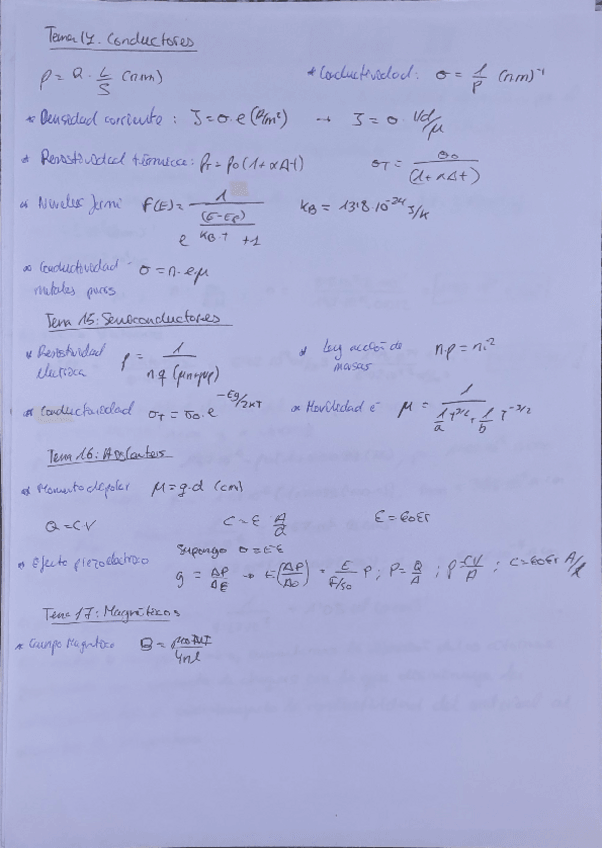 Tema 14. Conductores
ρ = R · L/S (Ωm) * Conductividad: σ = 1/ρ (Ωm)⁻¹
* Densidad corriente: J = σ · e (A/m²) → J = σ · Vd/μ
* Resistividad térmica: ρT = ρ0 (1 + αΔt) σT = σ0/(1+αΔt)
* Niveles fermi F(E) = 1/(e^((E-EF)/(KB·t)) + 1) KB = 1'38·10⁻²⁴ J/K
* Conductividad σ = n·e·μ
metales puros
Tema 15: Semiconductores
* Resistividad ρ = 1/(n q (μn+pμp)) * Ley acción de n·p = ni²
eléctrica masas
* Conductividad σT = σ0 · e^(-Eg/2KT) * Movilidad e⁻ μ = 1/(1/a T^(3/2) + 1/b T^(-3/2))
Tema 16: Aislantes
* Momento dipolar μ = q·d (cm)
Q = CV C = ε A/d ε = ε0εr
* Efecto piezoeléctrico Supongo σ = E·ε
g = ΔP/ΔE ; P = Q/A ; P = CV/A ; C = ε0εr A/l
Tema 17: Magnéticos
* Campo Magnético